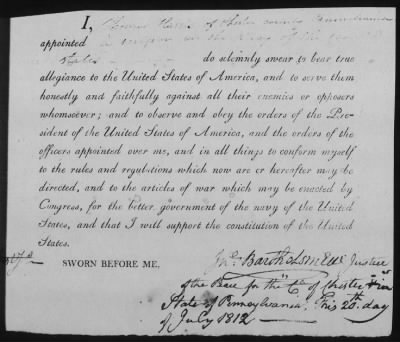 I, Thomas Harris of Chester county Pennsylvania
appointed a surgeon in the Navy of the United
States do solemnly swear to bear true
allegiance to the United States of America, and to serve them
honestly and faithfully against all their enemies or opposers
whomsoever; and to observe and obey the orders of the Pre-
sident of the United States of America, and the orders of the
officers appointed over me, and in all things to conform myself
to the rules and regulations which now are or hereafter may be
directed, and to the articles of war which may be enacted by
Congress, for the better government of the navy of the United
States, and that I will support the constitution of the United
States.
SWORN BEFORE ME,
Jno. Bartholomew Justice
of the Peace for the Co. of Chester
State of Pennsylvania. This 20th day
of July 1812